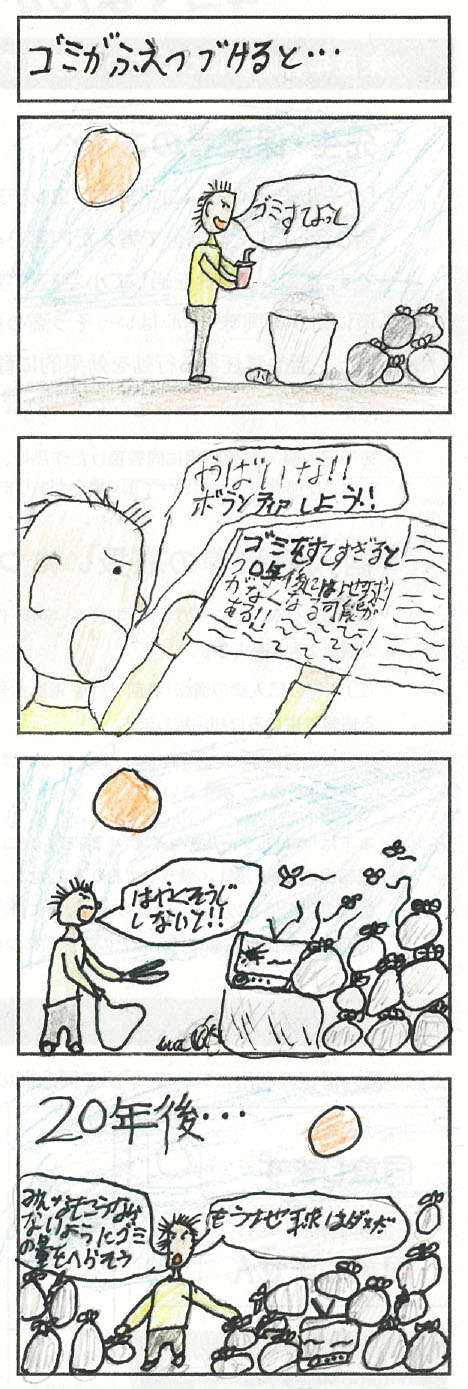 ゴミがふえつづけると…
ゴミすてよっと
やばいな!!
ボランティアしよう!!
ゴミをすてすぎると
20年後には地球
がなくなる可能が
ある!!
はやくそうじ
しないと!!
20年後…
もう地球はダメだ
みんなもこうなら
ないようにゴミ
の量をへらそう